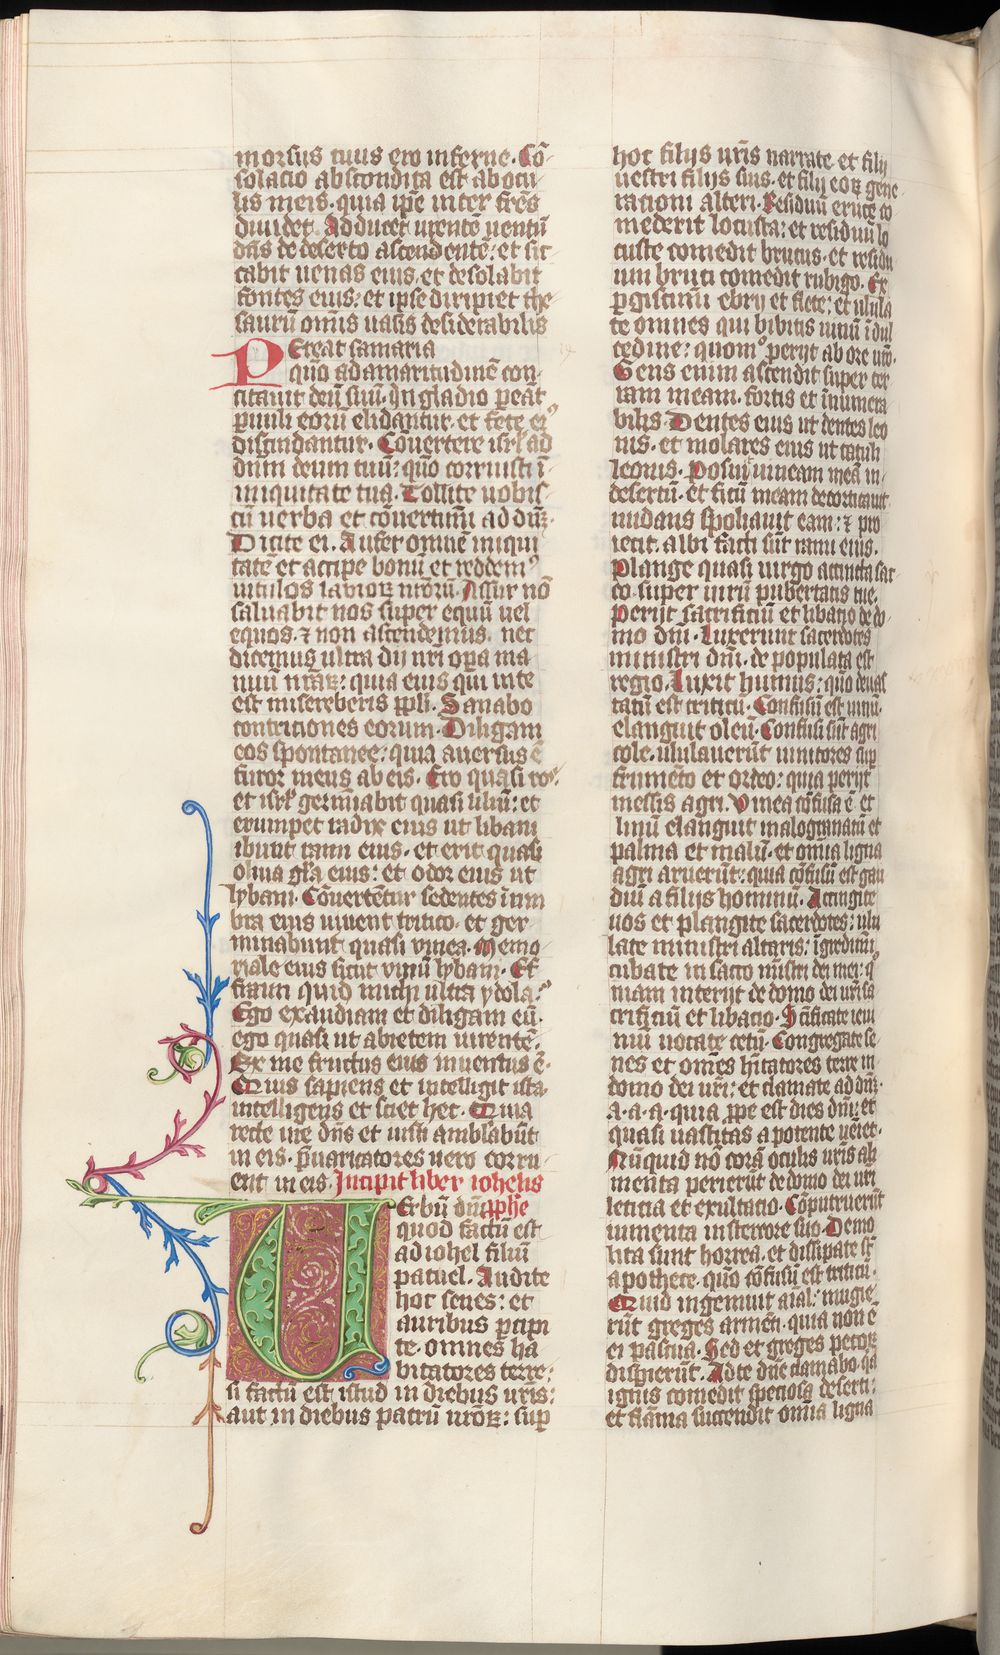 morsus tuus ero inferne. Cō
solacio abscondita est ab ocu
lis meis. quia ip̄e inter fr̄es
diuidet. Adducet urentē uentū
dn̄s de deserto ascendentē: et sic
cabit uenas eius. et desolabit
fontes eius: et ipse diripiet the
saurū om̄is uasis desiderabilis
Pereat samaria
quō ad amaritudinē con
citauit deū suū. In gladio ꝑeāt
puuli eorū elidantur. et fete eiꝰ
discindantur. Cōuertere isrl̄ ad
dn̄m deum tuū: quō corruisti ī
iniquitate tua. Tollite uobis
cū uerba et cōuertimī ad dn̄m.
Dicite ei. Aufer omnē iniqui
tatē et accipe bonū et reddemꝰ
uitulos labioꝝ nr̄orū. Assur nō
saluabit nos super equū uel
equos. ⁊ non ascendemus. nec
dicemus ultra dij nr̄i oꝑa ma
nuū nr̄aꝝ: quia eius qui in te
est misereberis ppl̄i. Sanabo
contriciones eorum. Diligam
eos spontanee: quia auersus ē
furor meus ab eis. Ero quasi ros
et isrl̄ germīabit quasi liliū: et
erumpet radix eius ut libani
ibunt rami eius. et erit quasi
oliua gl̄a eius: et odor eius ut
lybani. Cōuertētur sedentes ī um
bra eius uiuent tritico. et ger
minabunt quasi vinea. Memo
riale eius sicut vinū lybani. Ef
fraim quid michi ultra ydola?
Ego exaudiam et diligam eū.
ego quasi ut abietem uirentē.
Ex me fructus eius inuentus ē.
Quis sapiens et intelliget ista
intelligens et sciet hec. Quia
recte uie dn̄i et iusti āblabūt
in eis. p̄uaricatores uero corru
ent in eis. Incipit liber iohelis
Uerbū dn̄i ꝓphe
quod factū est
ad iohel filiū
patuel. Audite
hoc senes: et
auribus ꝑcipi
te omnes ha
bitatores terre:
si factū est istud in diebus ur̄is:
aut in diebus patrū ur̄oꝝ: sup
hoc filijs ur̄is narrate et filij
uestri filijs suis. et filij eoꝝ gene
rationi alteri. Residuū eruce co
mederit locusta: et residuū lo
custe comedit brucus. et residu
um bruti comedit rubigo. Ex
ꝑgiscimī ebrij et flete: et ulula
te omnes qui bibitis uinū ī dul
cedine: quomō perijt ab ore ur̄o.
Gens enim ascendit super ter
ram meam. fortis et īnumera
bilis. Dentes eius ut dentes leo
nis. et molares eius ut catuli
leonis. Posuit uineam meā in
desertū. et ficū meam decorticauit.
nudans spoliauit eam: ⁊ pro
iecit. albi facti sūt rami eius.
Plange quasi uirgo accincta sac
co super uirū pubertatis tue.
Perijt sacrificiū et libacio de do
mo dn̄i. Luxerunt sacerdotes
ministri dn̄i. de populata est
regio. Luxit humus: quō deuas
tatū est triticū. Confusū est uinū.
elanguit oleū. Confusi sūt agri
cole. ululauerūt uinitores sup
frumēto et ordeo: quia perijt
messis agri. Vinea cōfusa ē et
ficus elanguit malogranatū et
palma et malū. et om̄ia ligna
agri aruerūt: quia cōfusū est gau
diū a filijs hominū. Accingite
uos et plangite sacerdotes: ulu
late ministri altaris: īgredimī
cubate in sacco mīstri dei mei: qm̄
niam interijt de domo dei uri sa
crificiū et libacio. Sc̄ificate ieiu
niū uocate cetū. Congregate se
nes et om̄es hitatores terre in
domo dei uri: et clamate ad dn̄m.
a. a. a. quia ꝓpe est dies dn̄i: et
quasi uastitas a potente ueiet.
Nūquid nō corā oculis ur̄is ali
menta perierūt de domo dei uri
leticia et exultacio. Cōputruerūt
iumenta in stercore suo. Demo
lita sunt horrea. et dissipate sūt
apothece. quō cōfusū est triticū.
Quid ingemuit aīal: mugie
rūt greges armēti. quia non ē
ei pascua. Sed et greges pecoꝝ
disperierūt. Ad te dn̄e clamabo. qa
ignis comedit speciosa deserti:
et flāma succendit om̄ia ligna